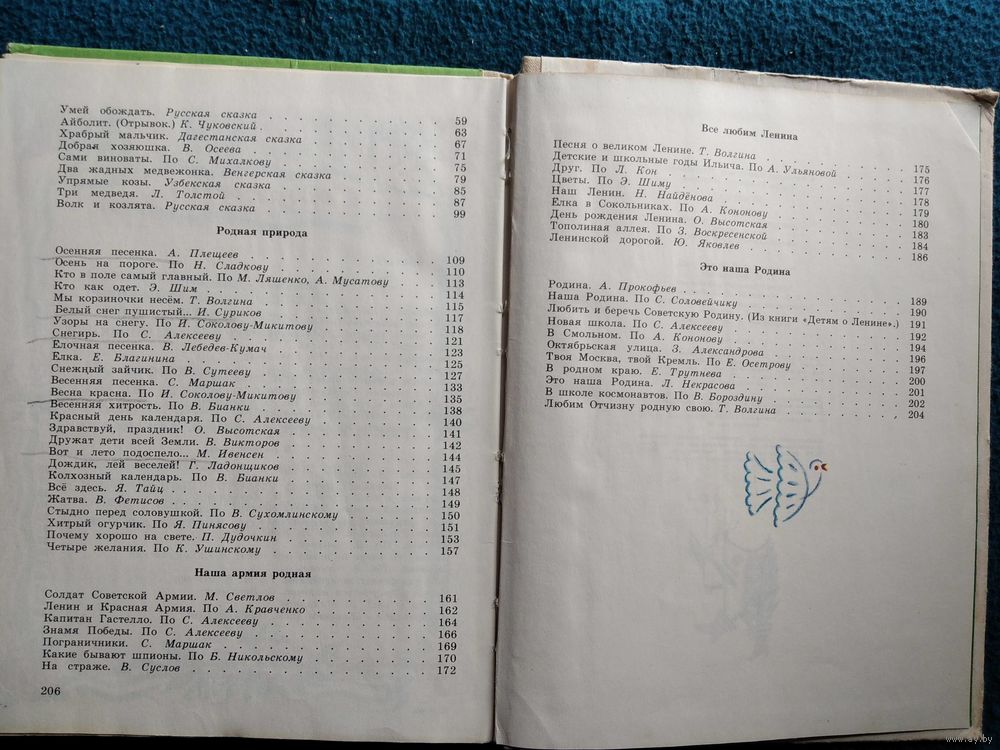 Умей обождать. Русская сказка . . . . . . . . . . 59
Айболит. (Отрывок.) К. Чуковский . . . . . . . . . . 63
Храбрый мальчик. Дагестанская сказка . . . . . . . . 67
Добрая хозяюшка. В. Осеева . . . . . . . . . . 71
Сами виноваты. По С. Михалкову . . . . . . . . . . 75
Два жадных медвежонка. Венгерская сказка . . . . . . . 79
Упрямые козы. Узбекская сказка . . . . . . . . . . 85
Три медведя. Л. Толстой . . . . . . . . . . 87
Волк и козлята. Русская сказка . . . . . . . . . . 99
Родная природа
Осенняя песенка. А. Плещеев . . . . . . . . . . 109
Осень на пороге. По Н. Сладкову . . . . . . . . . . 110
Кто в поле самый главный. По М. Ляшенко, А. Мусатову . . . 113
Кто как одет. Э. Шим . . . . . . . . . . 114
Мы корзиночки несём. Т. Волгина . . . . . . . . . . 115
Белый снег пушистый... И. Суриков . . . . . . . . . . 117
Узоры на снегу. По И. Соколову-Микитову . . . . . . . 118
Снегирь. По С. Алексееву . . . . . . . . . . 121
Ёлочная песенка. В. Лебедев-Кумач . . . . . . . . . . 123
Ёлка. Е. Благинина . . . . . . . . . . 125
Снежный зайчик. По В. Сутееву . . . . . . . . . . 127
Весенняя песенка. С. Маршак . . . . . . . . . . 133
Весна красна. По И. Соколову-Микитову . . . . . . . . 135
Весенняя хитрость. По В. Бианки . . . . . . . . . . 138
Красный день календаря. По С. Алексееву . . . . . . . 140
Здравствуй, праздник! О. Высотская . . . . . . . . . . 141
Дружат дети всей Земли. В. Викторов . . . . . . . . . 142
Вот и лето подоспело... М. Ивенсен . . . . . . . . . . 144
Дождик, лей веселей! Г. Ладонщиков . . . . . . . . . . 145
Колхозный календарь. По В. Бианки . . . . . . . . . . 147
Всё здесь. Я. Тайц . . . . . . . . . . 148
Жатва. В. Фетисов . . . . . . . . . . 149
Стыдно перед соловушкой. По В. Сухомлинскому . . . . . . 150
Хитрый огурчик. По Я. Пинясову . . . . . . . . . . 151
Почему хорошо на свете. П. Дудочкин . . . . . . . . . 153
Четыре желания. По К. Ушинскому . . . . . . . . . . 157
Наша армия родная
Солдат Советской Армии. М. Светлов . . . . . . . . . . 161
Ленин и Красная Армия. По А. Кравченко . . . . . . . . 162
Капитан Гастелло. По С. Алексееву . . . . . . . . . . 164
Знамя Победы. По С. Алексееву . . . . . . . . . . 166
Пограничники. С. Маршак . . . . . . . . . . 169
Какие бывают шпионы. По Б. Никольскому . . . . . . . . 170
На страже. В. Суслов . . . . . . . . . . 172
206
Все любим Ленина
Песня о великом Ленине. Т. Волгина . . . . . . . . . . 175
Детские и школьные годы Ильича. По А. Ульяновой . . . . . 176
Друг. По Л. Кон . . . . . . . . . . 177
Цветы. По Э. Шиму . . . . . . . . . . 178
Наш Ленин. Н. Найдёнова . . . . . . . . . . 179
Ёлка в Сокольниках. По А. Кононову . . . . . . . . . . 180
День рождения Ленина. О. Высотская . . . . . . . . . . 183
Тополиная аллея. По З. Воскресенской . . . . . . . . . 184
Ленинской дорогой. Ю. Яковлев . . . . . . . . . . 186
Это наша Родина
Родина. А. Прокофьев . . . . . . . . . . 189
Наша Родина. По С. Соловейчику . . . . . . . . . . 190
Любить и беречь Советскую Родину. (Из книги «Детям о Ленине».) 191
Новая школа. По С. Алексееву . . . . . . . . . . 192
В Смольном. По А. Кононову . . . . . . . . . . 194
Октябрьская улица. З. Александрова . . . . . . . . . . 196
Твоя Москва, твой Кремль. По Е. Осетрову . . . . . . . 197
В родном краю. Е. Трутнева . . . . . . . . . . 200
Это наша Родина. Л. Некрасова . . . . . . . . . . 201
В школе космонавтов. По В. Бороздину . . . . . . . . . 202
Любим Отчизну родную свою. Т. Волгина . . . . . . . . 204
www.ay.by